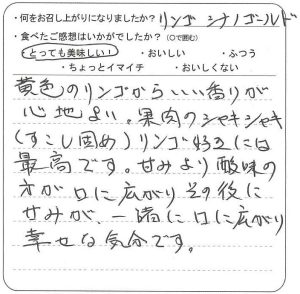 ・何をお召し上がりになりましたか？リンゴ シナノゴールド
・食べたご感想はいかがでしたか？（○で囲む）
・とっても美味しい！ ・おいしい ・ふつう
・ちょっとイマイチ ・おいしくない
黄色のリンゴからいい香りが
心地よい。果肉のシャキシャキ
(すこし固め)リンゴ好きには
最高です。甘みより酸味の
方が口に広がりその後に
甘みが、一緒に口に広がり
幸せな気分です。